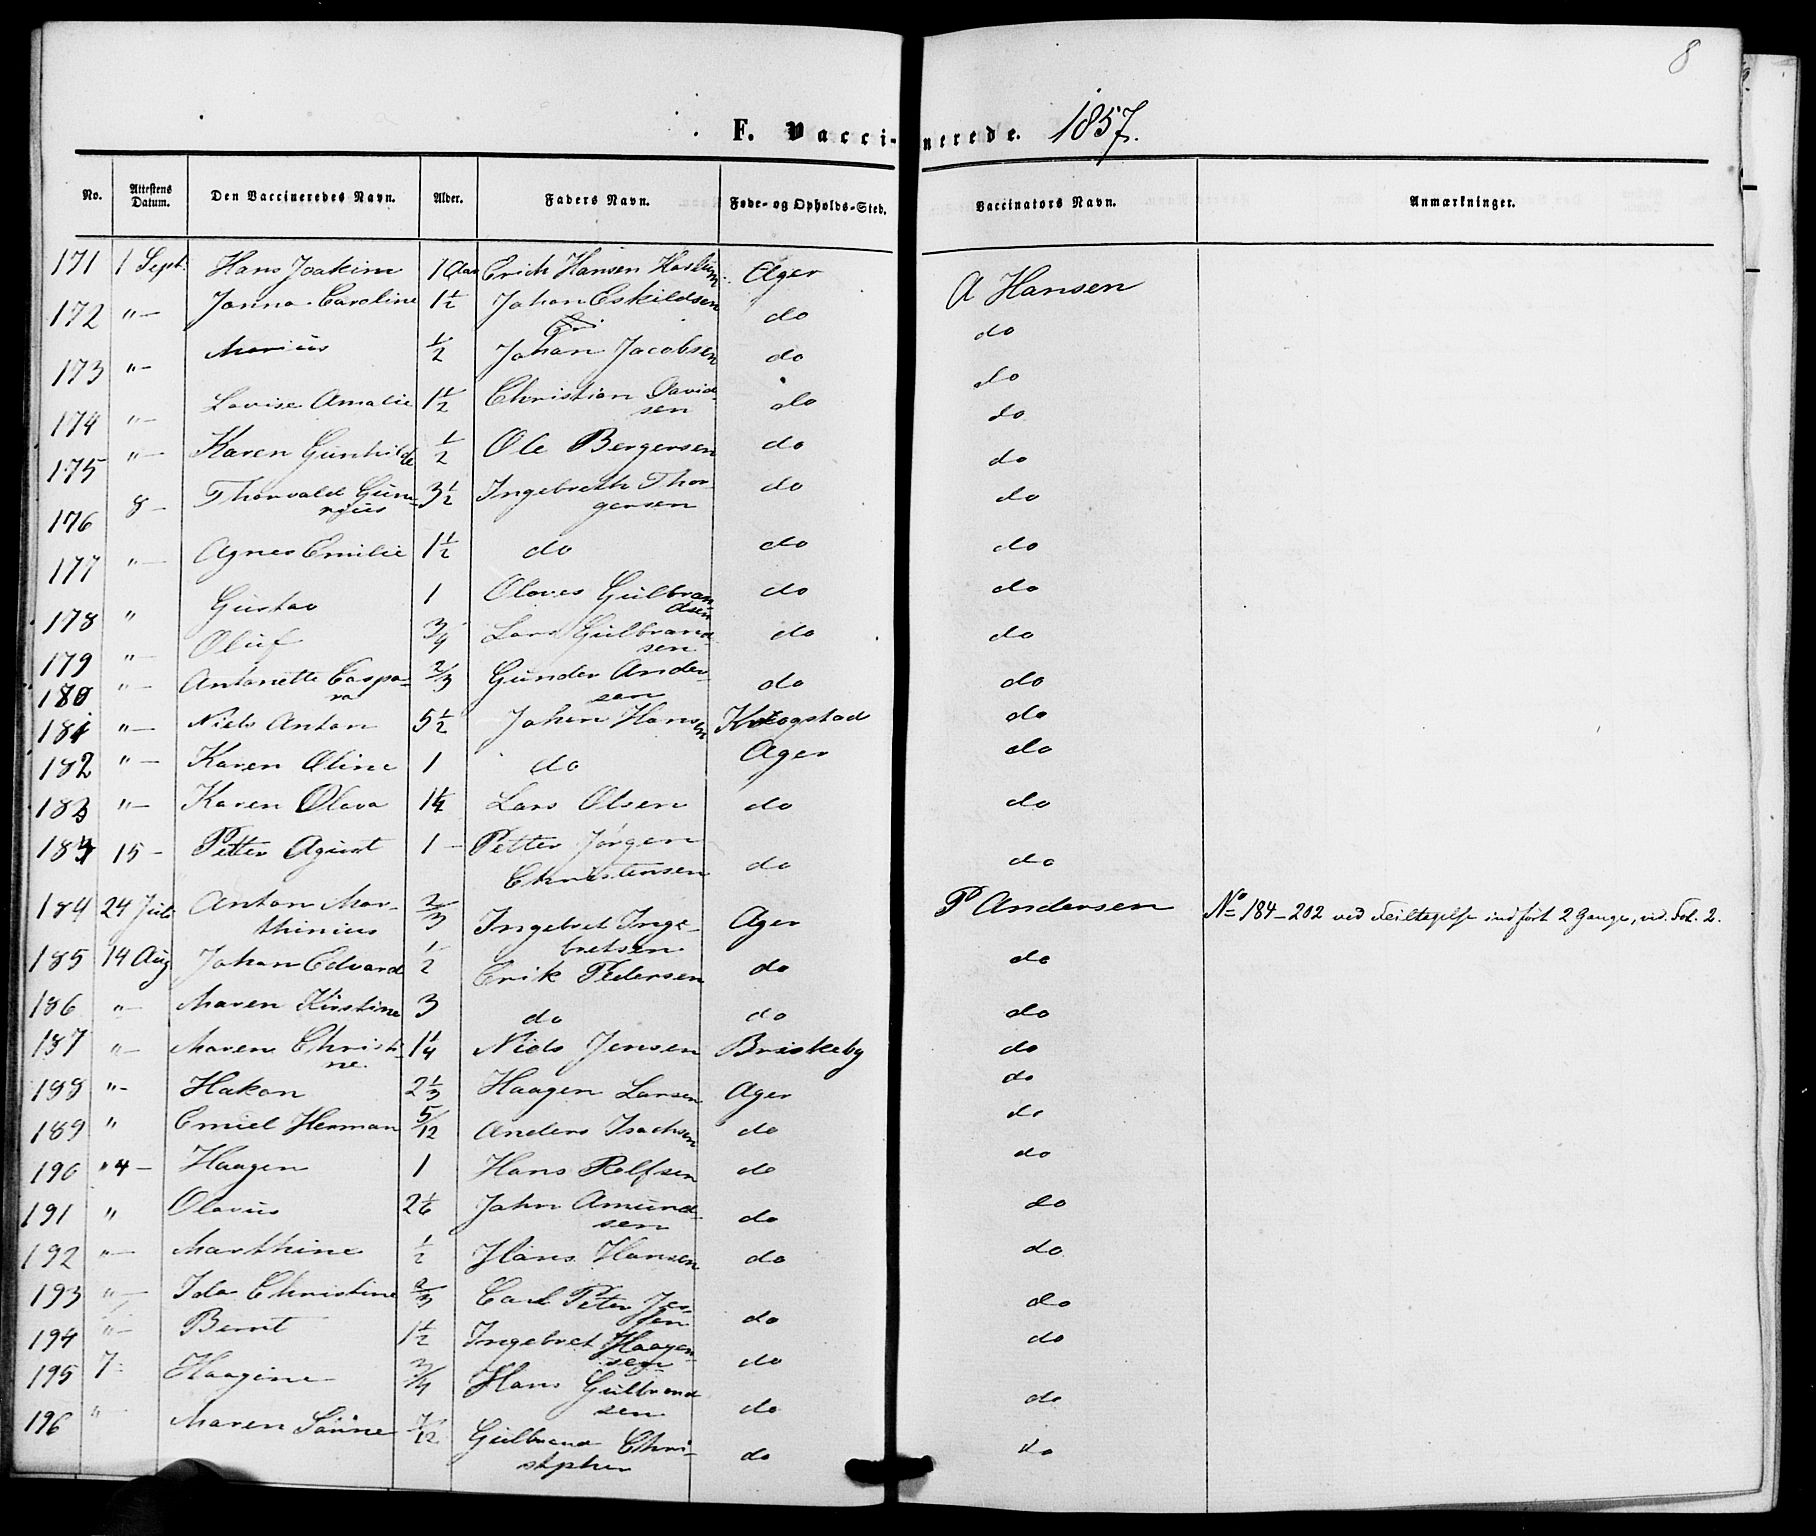 8
F. Vaccinerede. 1857.
No. Attestens Datum. Den Vaccineredes Navn. Alder. Faders Navn. Føde- og Opholds-Sted. Vaccinators Navn. Anmærkninger.
171 1 Sept. Hans Joakim 1 Aar Erich Hansen Haslum Ager A Hansen
172 "— Janna Caroline 1½ Johan Eskildsen do do
173 "— Marius ½ Johan Jacobsen do do
174 "— Lovise Amalie 1½ Christian David-
sen do do
175 "— Karen Gunhilde ½ Ole Bergersen do do
176 8 — Thorvald Gun-
nius 3½ Ingebreth Thor-
gersen do do
177 "— Agnes Emilie 1½ do do do
178 " Gustav 1 Olaves Gulbran-
dsen do do
179 "— Oluf ¾ Lars Gulbrand-
sen do do
180 "— Antonette Caspa-
ra 2/3 Gunder Ander-
sen do do
181 "— Niels Anton 5½ Johan Hansen Krogstad do
182 "— Karen Oline 1 do Ager do
183 "— Karen Olava 1¼ Lars Olsen do do
184 15 — Petter Agust 1 — Petter Jørgen
Christensen do do
184 24 Juli Anton Mar-
thinius 2/3 Ingebret Inge-
bretsen Ager P Andersen No 184-202 ved Feiltagelse indført 2 Gange, vid. Fol. 2.
185 14 Aug Johan Edvard ½ Erik Pedersen do do
186 "— Maren Kirstine 3 do do do
187 "— Maren Christi-
ne. 1¼ Niels Jensen Briskeby do
188 "— Hakon 2⅓ Haagen Larsen Ager do
189 " Emiel Herman 5/12 Anders Isachsen do do
190 "4 — Haagen 1 Hans Rolfsen do do
191 " Olavus 2 1/6 John Amund-
sen do do
192 "— Marthine ½ Hans Hansen do do
193 "— Ida Christine 2/3 Carl Peter Jen-
sen do do
194 "— Bernt 1½ Ingebret Haagen-
sen do do
195 7 — Haagine ¾ Hans Gulbrand-
sen do do
196 " Maren Sørine 7/12 Gulbrand Chri-
stopher do do